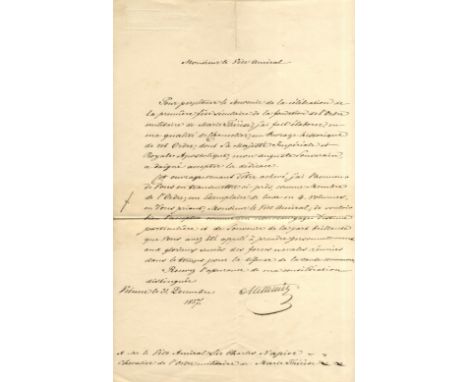 Monsieur le Vice Amiral
Pour perpétuer le Souvenir de la célébration de
la première fête séculaire de la fondation de l'Ordre
militaire de Marie Thérèse, j'ai fait élaborer, en
ma qualité de Chancelier, un Ouvrage historique
de cet Ordre, dont Sa Majesté Impériale et
Royale Apostolique, mon auguste Souverain,
a daigné accepter la dédicace.
Cet ouvrage venant d'être achevé, j'ai l'honneur
de Vous en transmettre ci-près, comme Membre
de l'Ordre, un Exemplaire de luxe en 4 volumes,
en Vous priant, Monsieur le Vice Amiral, de vouloir
bien l'accepter comme un témoignage d'estime
particulière et de Souvenir de la part brillante
que Vous avez été appelé à prendre personnellement
aux glorieux succès des forces navales réunies
dans le Levant pour la défense de la cause commune
Recevez l'assurance de ma considération
distinguée
Vienne le 31 Décembre
1857.
A Mr. le Vice Amiral Sir Charles Napier
Chevalier de l'Ordre militaire de Marie Thérèse